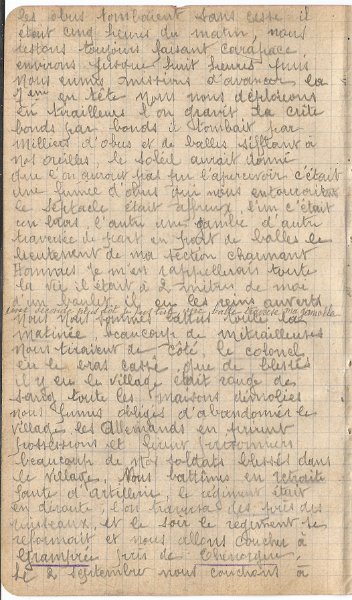 les obus tombaient sans cesse il
était cinq heures du matin, nous
restons toujours faisant carapace
environs jusque huit heures puis
nous eumes missions d'avancer la
7ème en tête nous nous déploierons
En tirailleurs l'on gravit la crête
bonds par bonds il tombait par
milliers d'obus et de balles sifflant à
nos oreilles, le soleil aurait donné
que l'on aurait pas pu l'apercevoir c'était
une fumée d'obus qui nous entouraient
le septacle était affreux, l'un c'était
un bras, l'autre une jambe d'autre
traversée de part en part de balles le
lieutenant de ma section charmant
Hommes je m'est rappellerais toute
la vie il était à 2 mètres de moi
d'un boulet il eu les reins ouverts
une balle traversa ma gamelle
Nous nous sommes battus toute la
matinée, beaucoup de mitrailleuses
nous tiraient de côté, le colonel
eu le bras cassé, que de blessés
il y eu le village était rouge de
sang toute les maisons démolies
nous fumes obligés d'abandonner le
village les Allemands en prirent
possessions et firent prisonniers
beaucoup de nos soldats blessés dans
le village. Nous battimes en retraite
faute d'artillerie, le régiment était
en déroute, l'on traversa des près des
ruisseaux, et le soir le régiment se
reformait et nous allons coucher à
Grandpré près de Chevrogne.
Le 2 septembre nous couchons à